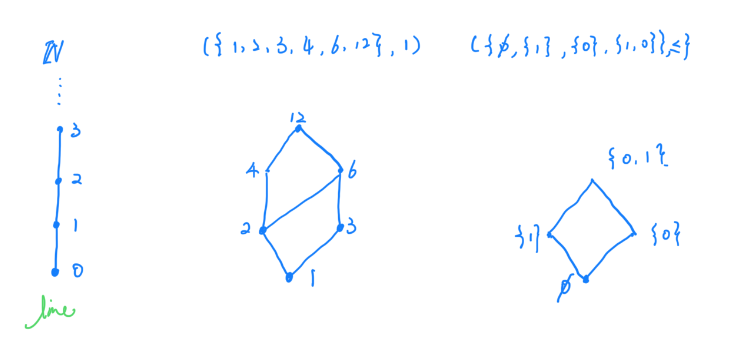 ℕ
3
2
1
0
line
({1,2,3,4,6,12}, |)
12
4
6
2
3
1
({∅,{1},{0},{1,0}},≤}
{0,1}
{1}
{0}
∅